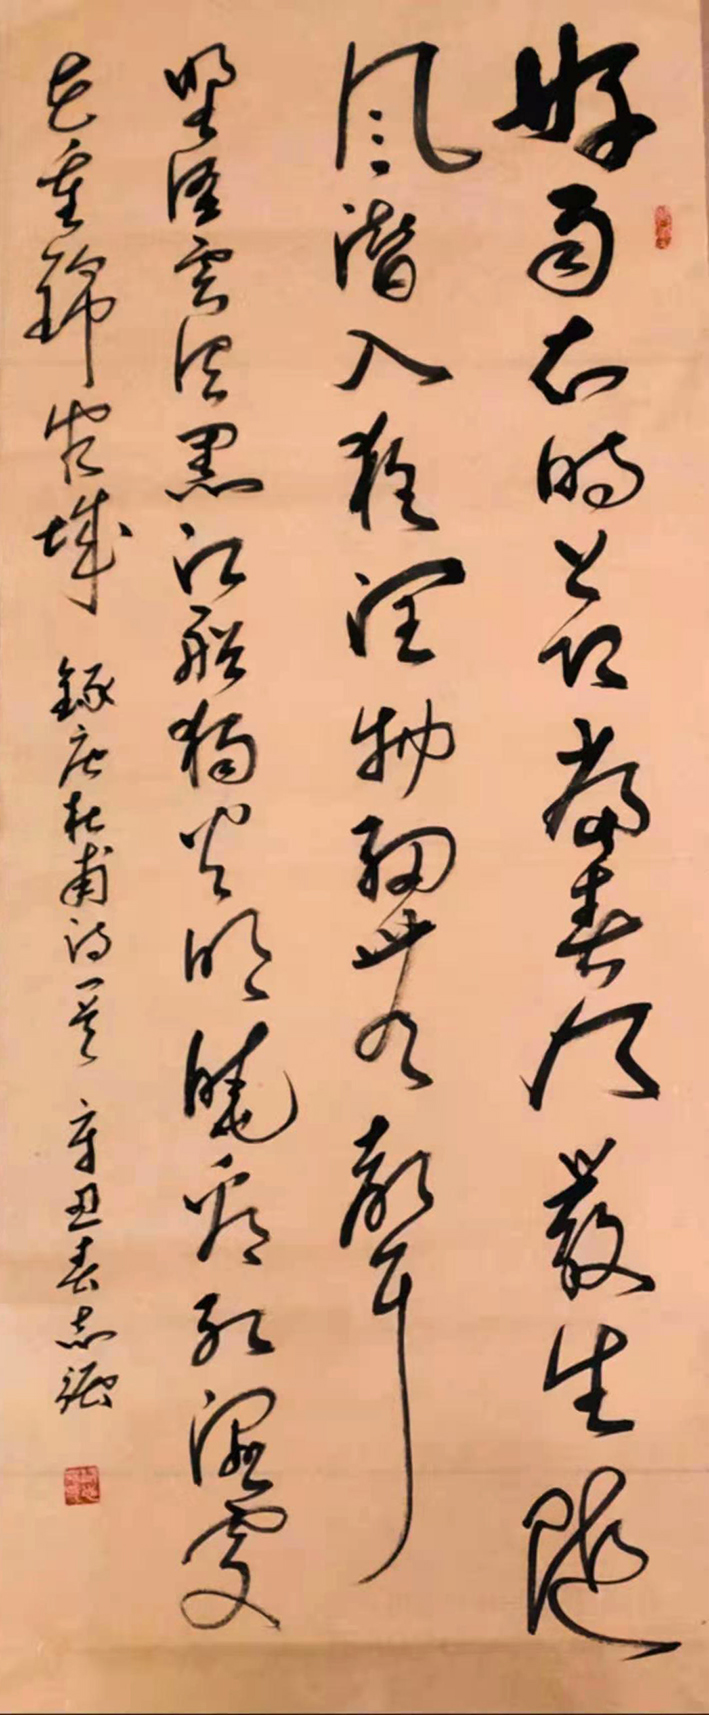 好雨知時節當春乃發生隨
風潛入夜潤物細無聲
野徑雲俱黑江船獨火明曉看紅濕處
花重錦官城 錄唐杜甫詩一首 辛丑春志強